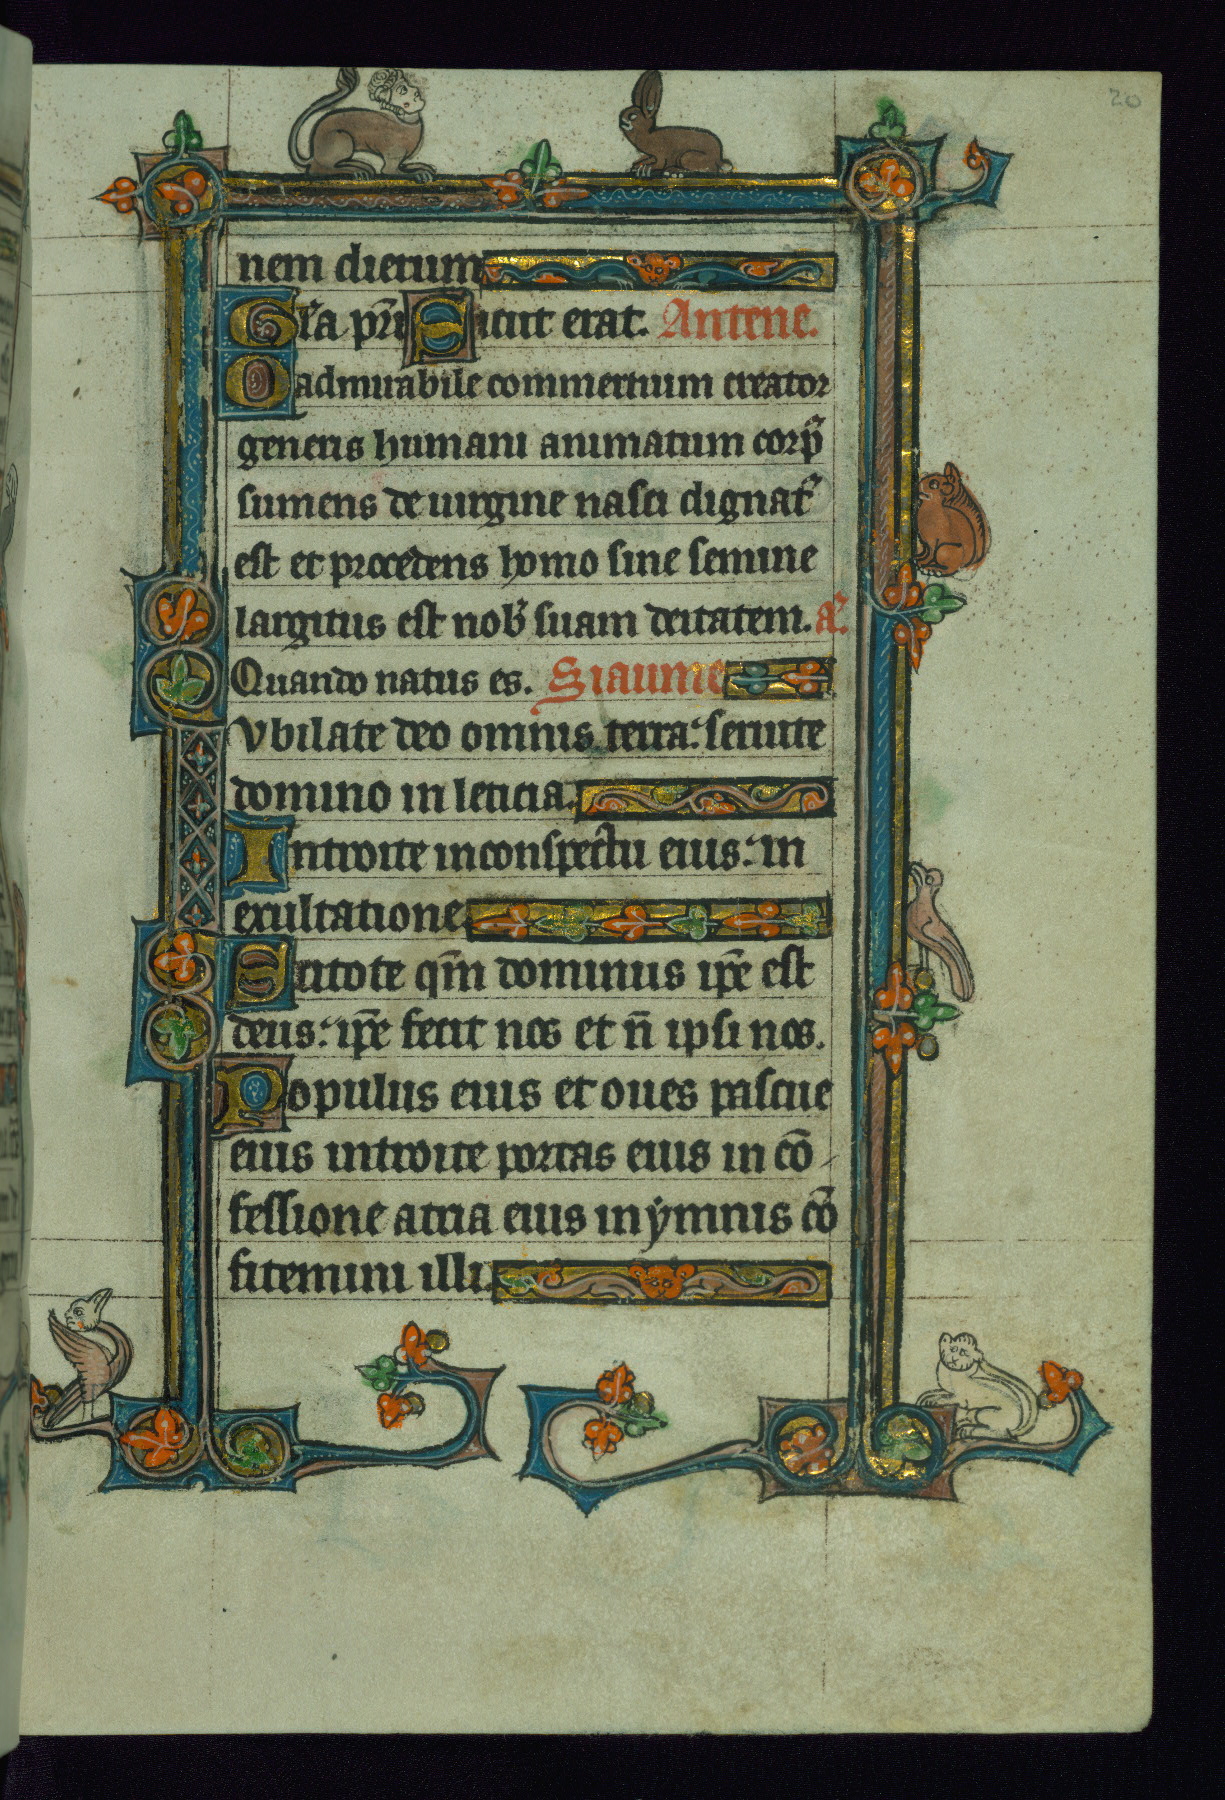 20
nem dierum
Gl'a pr̄i Sicut erat. Antene.
O admirabile commertium creator
generis humani animatum corp᷒
sumens de uirgine nasci dignat᷒
est et procedens homo sine semine
largitus est nob᷒ suam deitatem. a᷒.
Quando natus es. Siaume
Vbilate deo omnis terra: seruite
domino in leticia.
Introite in conspectu eius: in
exultatione
Scitote qm̄ dominus ip̄e est
deus: ip̄e fecit nos et n̄ ipsi nos.
Populus eius et oues pascue
eius introite portas eius in cō
fessione atria eius in ymnis cō
fitemini illi.